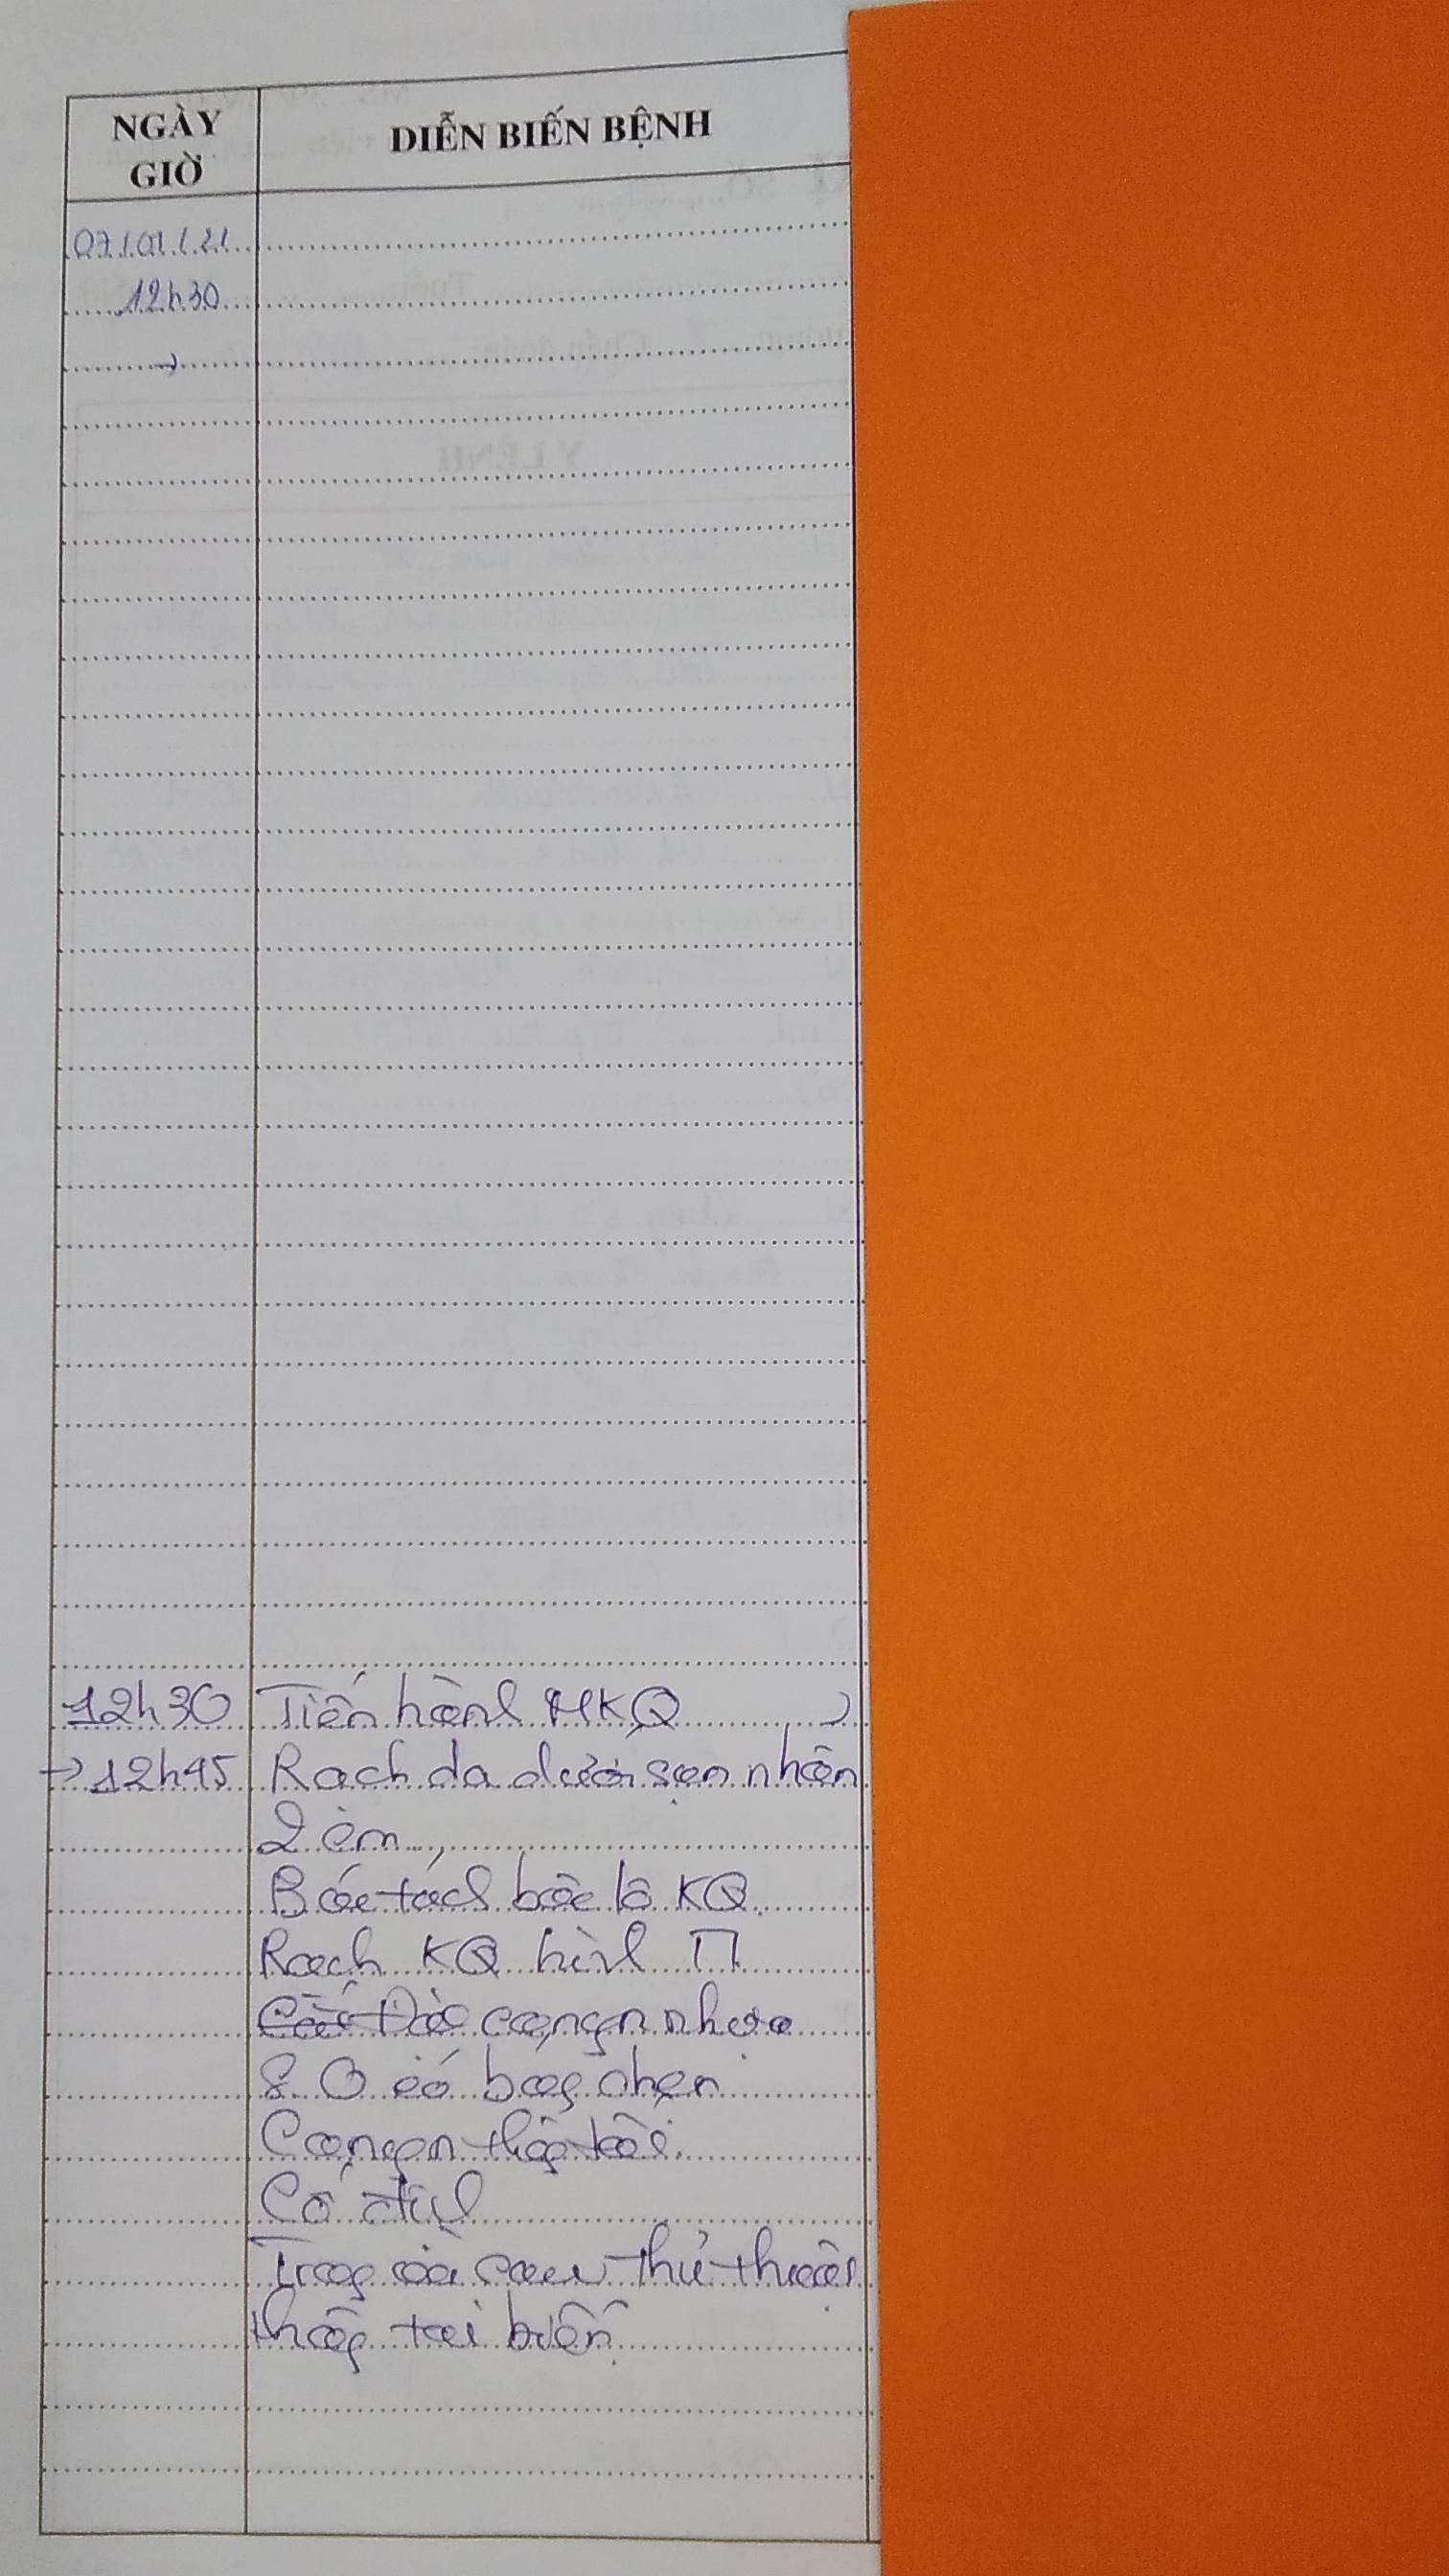 NGÀY
GIỜ
DIỄN BIẾN BỆNH
07/01/21
12h30
→
12h30 Tiến hành MKQ
→ 12h45 Rạch da dưới sụn nhẫn
2 cm
Bóc tách bộc lộ KQ
Rạch KQ hình Π
canyn nhựa
8.0 có bóng chèn
Canyn
Cố định
Trong và sau thủ thuật
không tai biến